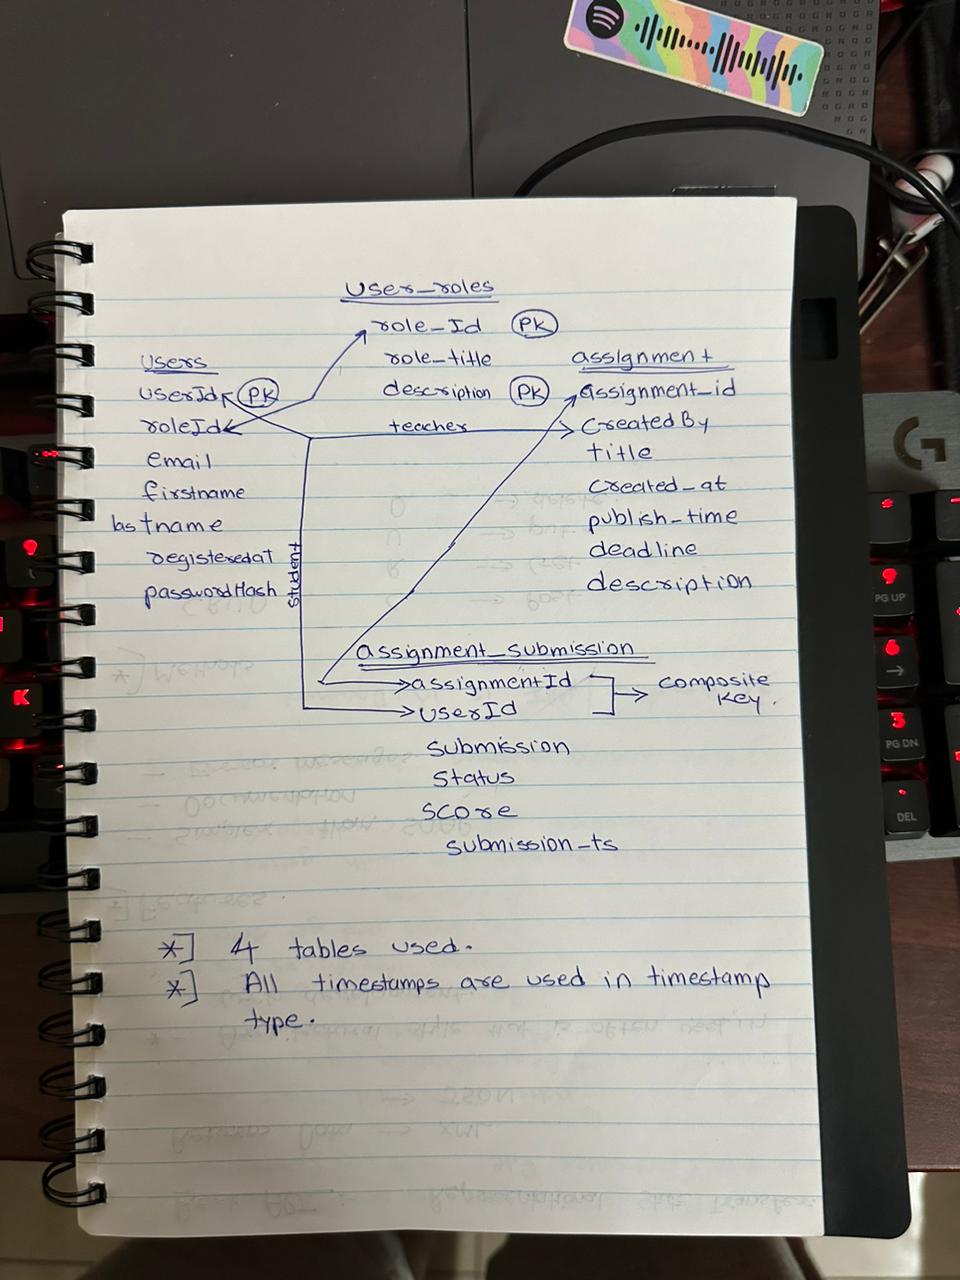 User_roles
role_Id PK
role_title
description
Users
userId PK
roleId
email
firstname
lastname
registeredat
passwordHash
teacher
student
assignment
PK assignment_id
CreatedBy
title
created_at
publish_time
deadline
description
assignment_submission
assignmentId
userId
composite
key.
submission
status
score
submission_ts
*] 4 tables used.
*] All timestamps are used in timestamp
type.
K
PG UP
6
3
PG DN
DEL
G